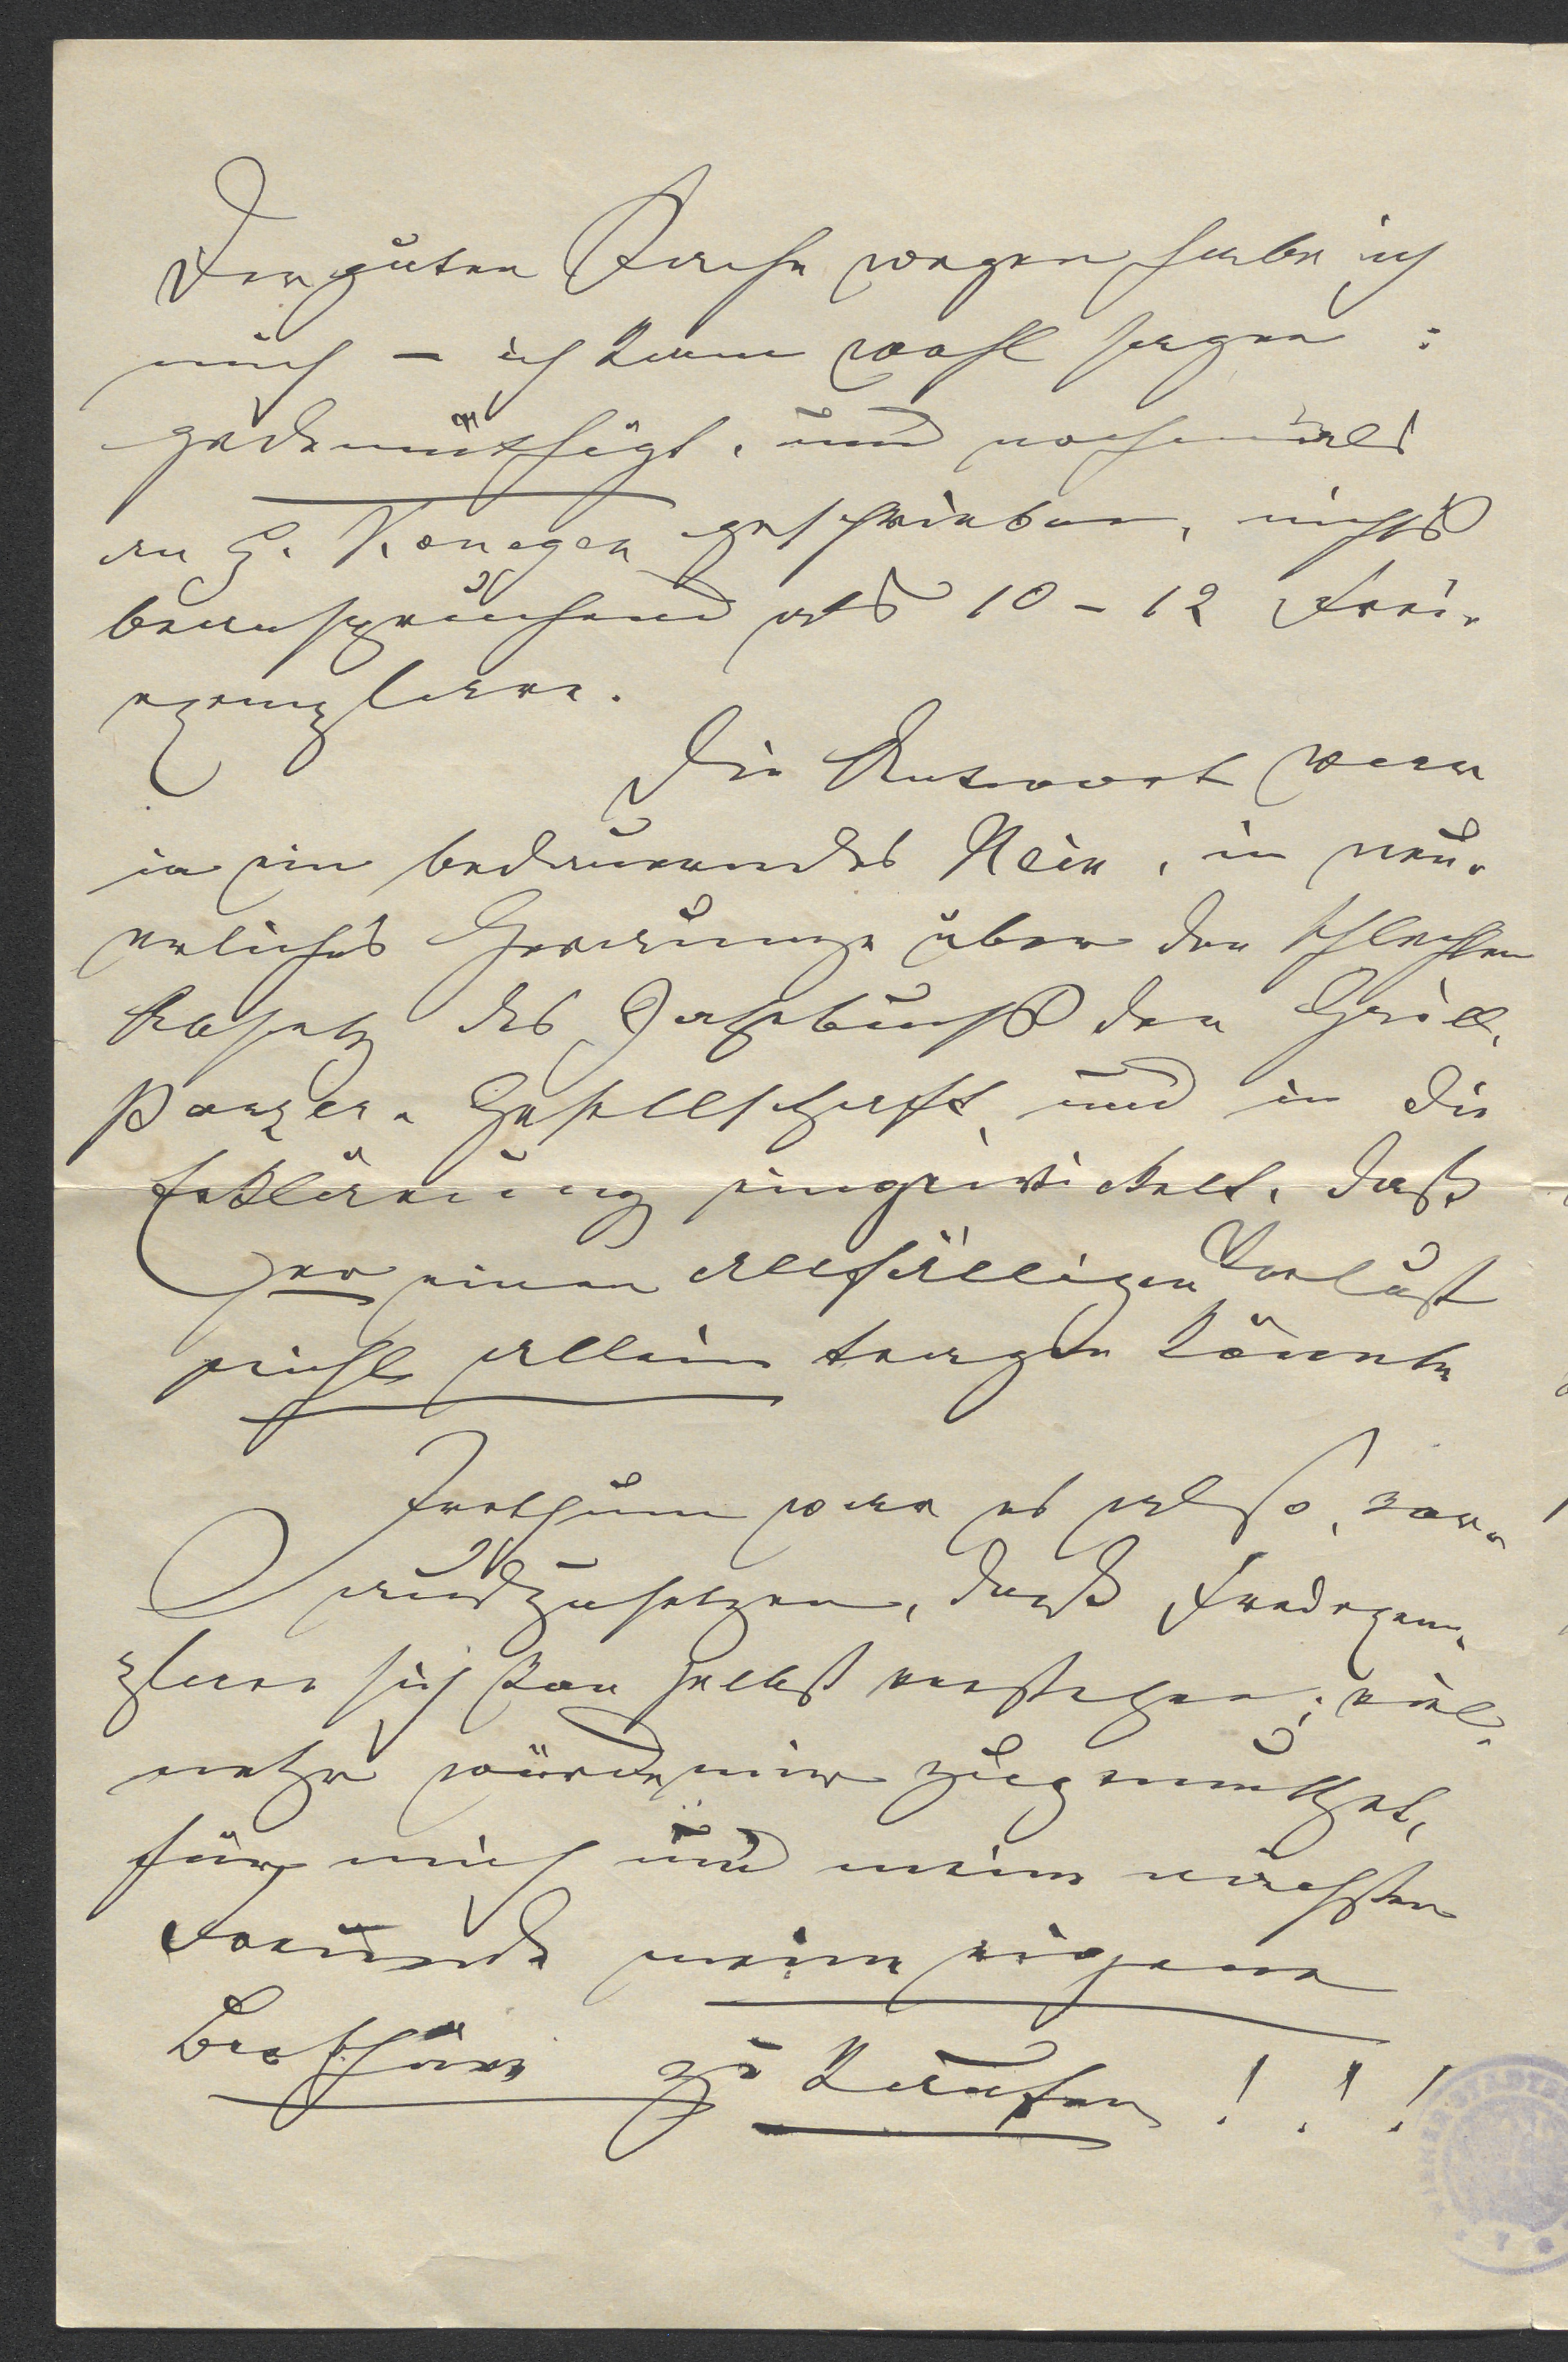 Der guten Sache wegen habe ich
mich – ich kann wohl sagen :
gedemüthigt, und nochmals
an H. Konegen geschrieben, nichts
beanspruchend als 10 – 12 Frei-
exemplare.
Die Antwort war
in ein bedauerndes Nein, in neu-
erliches Geraunze über den schlechten
Absatz des Jahrbuchs der Grill-
parzer-Gesellschaft, und in die
Erklärung eingewickelt, daß
Er einen allfälligen Verlust
nicht allein tragen könnte
Irrthum war es also, vor-
auszusetzen, daß Freiexem-
plare sich von selbst verstehen; viel-
mehr würde mir zugemuthet,
für mich und meine nächsten
Freunde meine eigene
Broschüre zu kaufen ! ! !
7